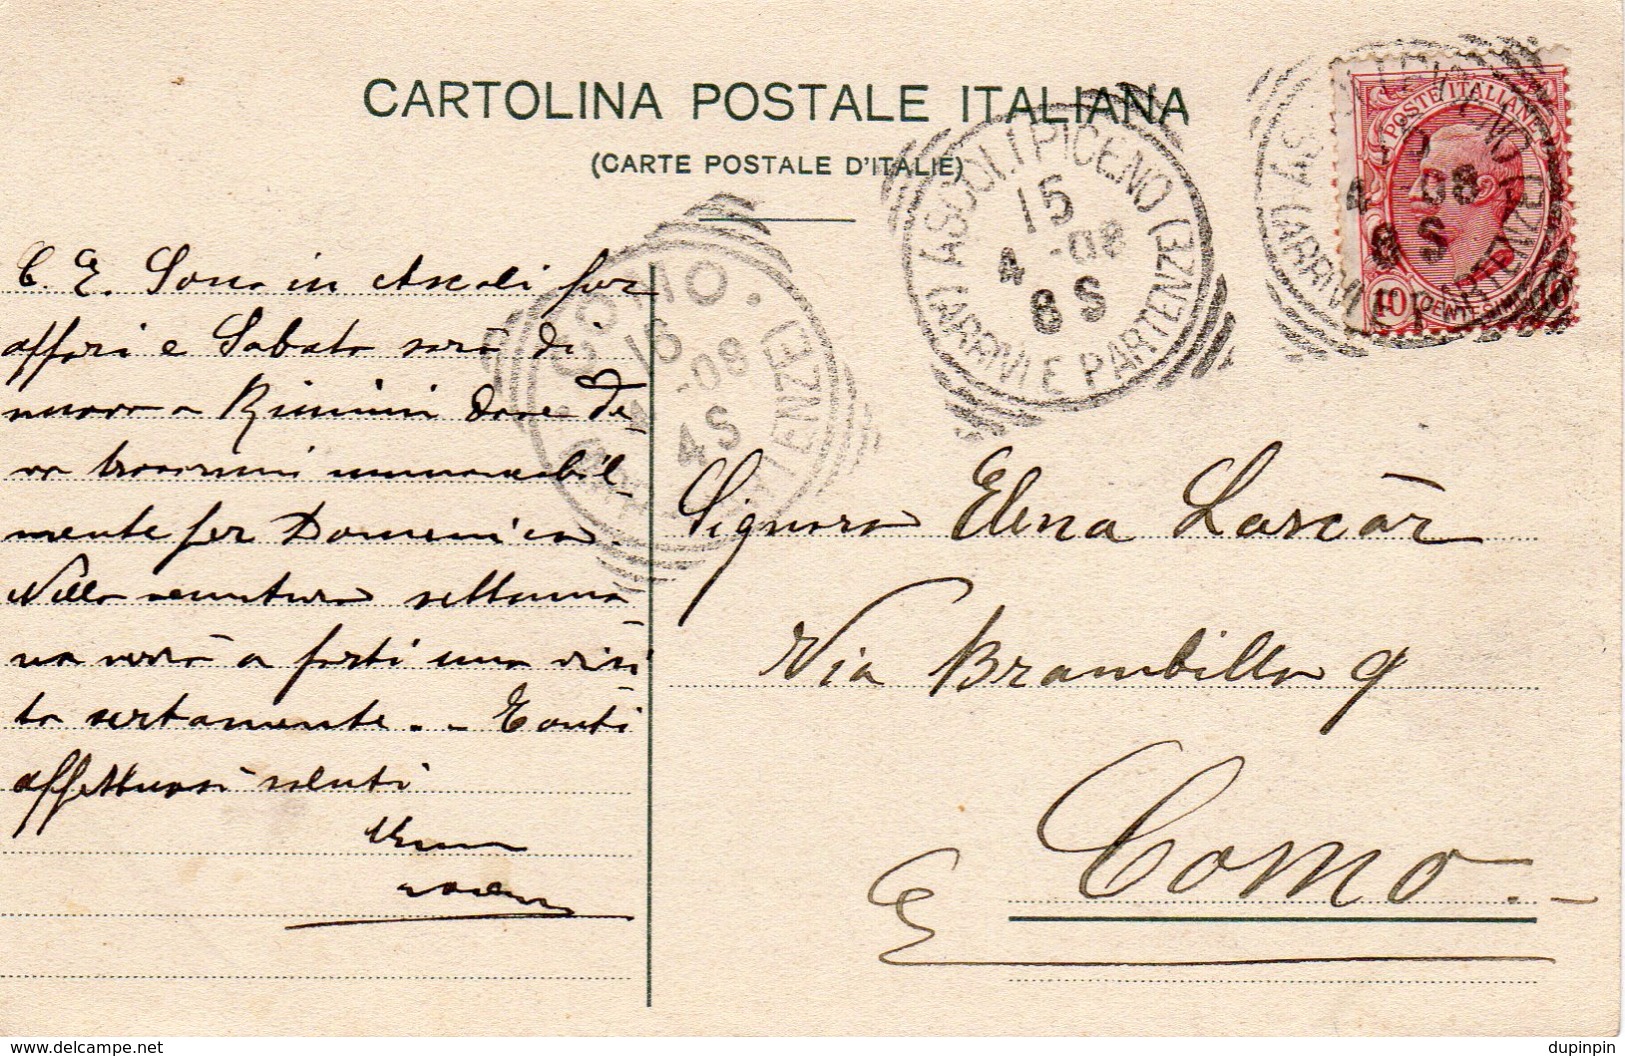 CARTOLINA POSTALE ITALIANA
(CARTE POSTALE D'ITALIE)
POSTE ITALIANE
10 CENTESIMI 10
ASCOLI PICENO
15
4 -08
8 S
(ARRIVI E PARTENZE)
4 -08
8 S
COMO
16
-08
4 S
C. E. Sono in Ascoli per
affari e Sabato sarò di
nuovo a Rimini dove de-
vo trovarmi immancabil-
mente per Domenica.
Nella ventura settima-
na verrà a farti una visi
ta certamente. - Tanti
affettuosi saluti
Signora Elena Lascàr
Via Brambilla 9
Como.-
delcampe.net
dupinpin